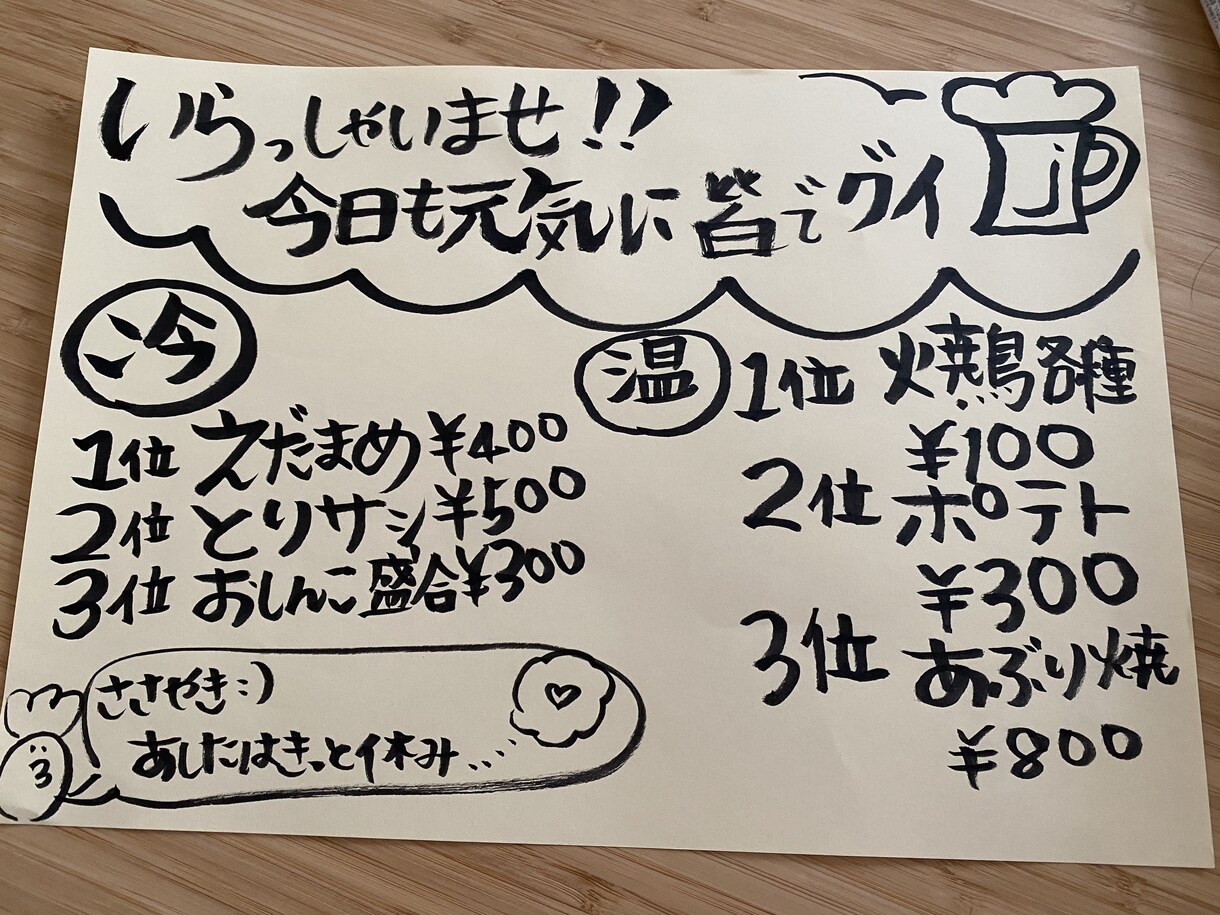 いらっしゃいませ!!
今日も元気に皆でグイ
冷
1位 えだまめ ¥400
2位 とりサシ ¥500
3位 おしんこ盛合 ¥300
温
1位 焼鳥各種
¥100
2位 ポテト
¥300
3位 あぶり焼
¥800
ささやき:)
あしたはきっと休み...